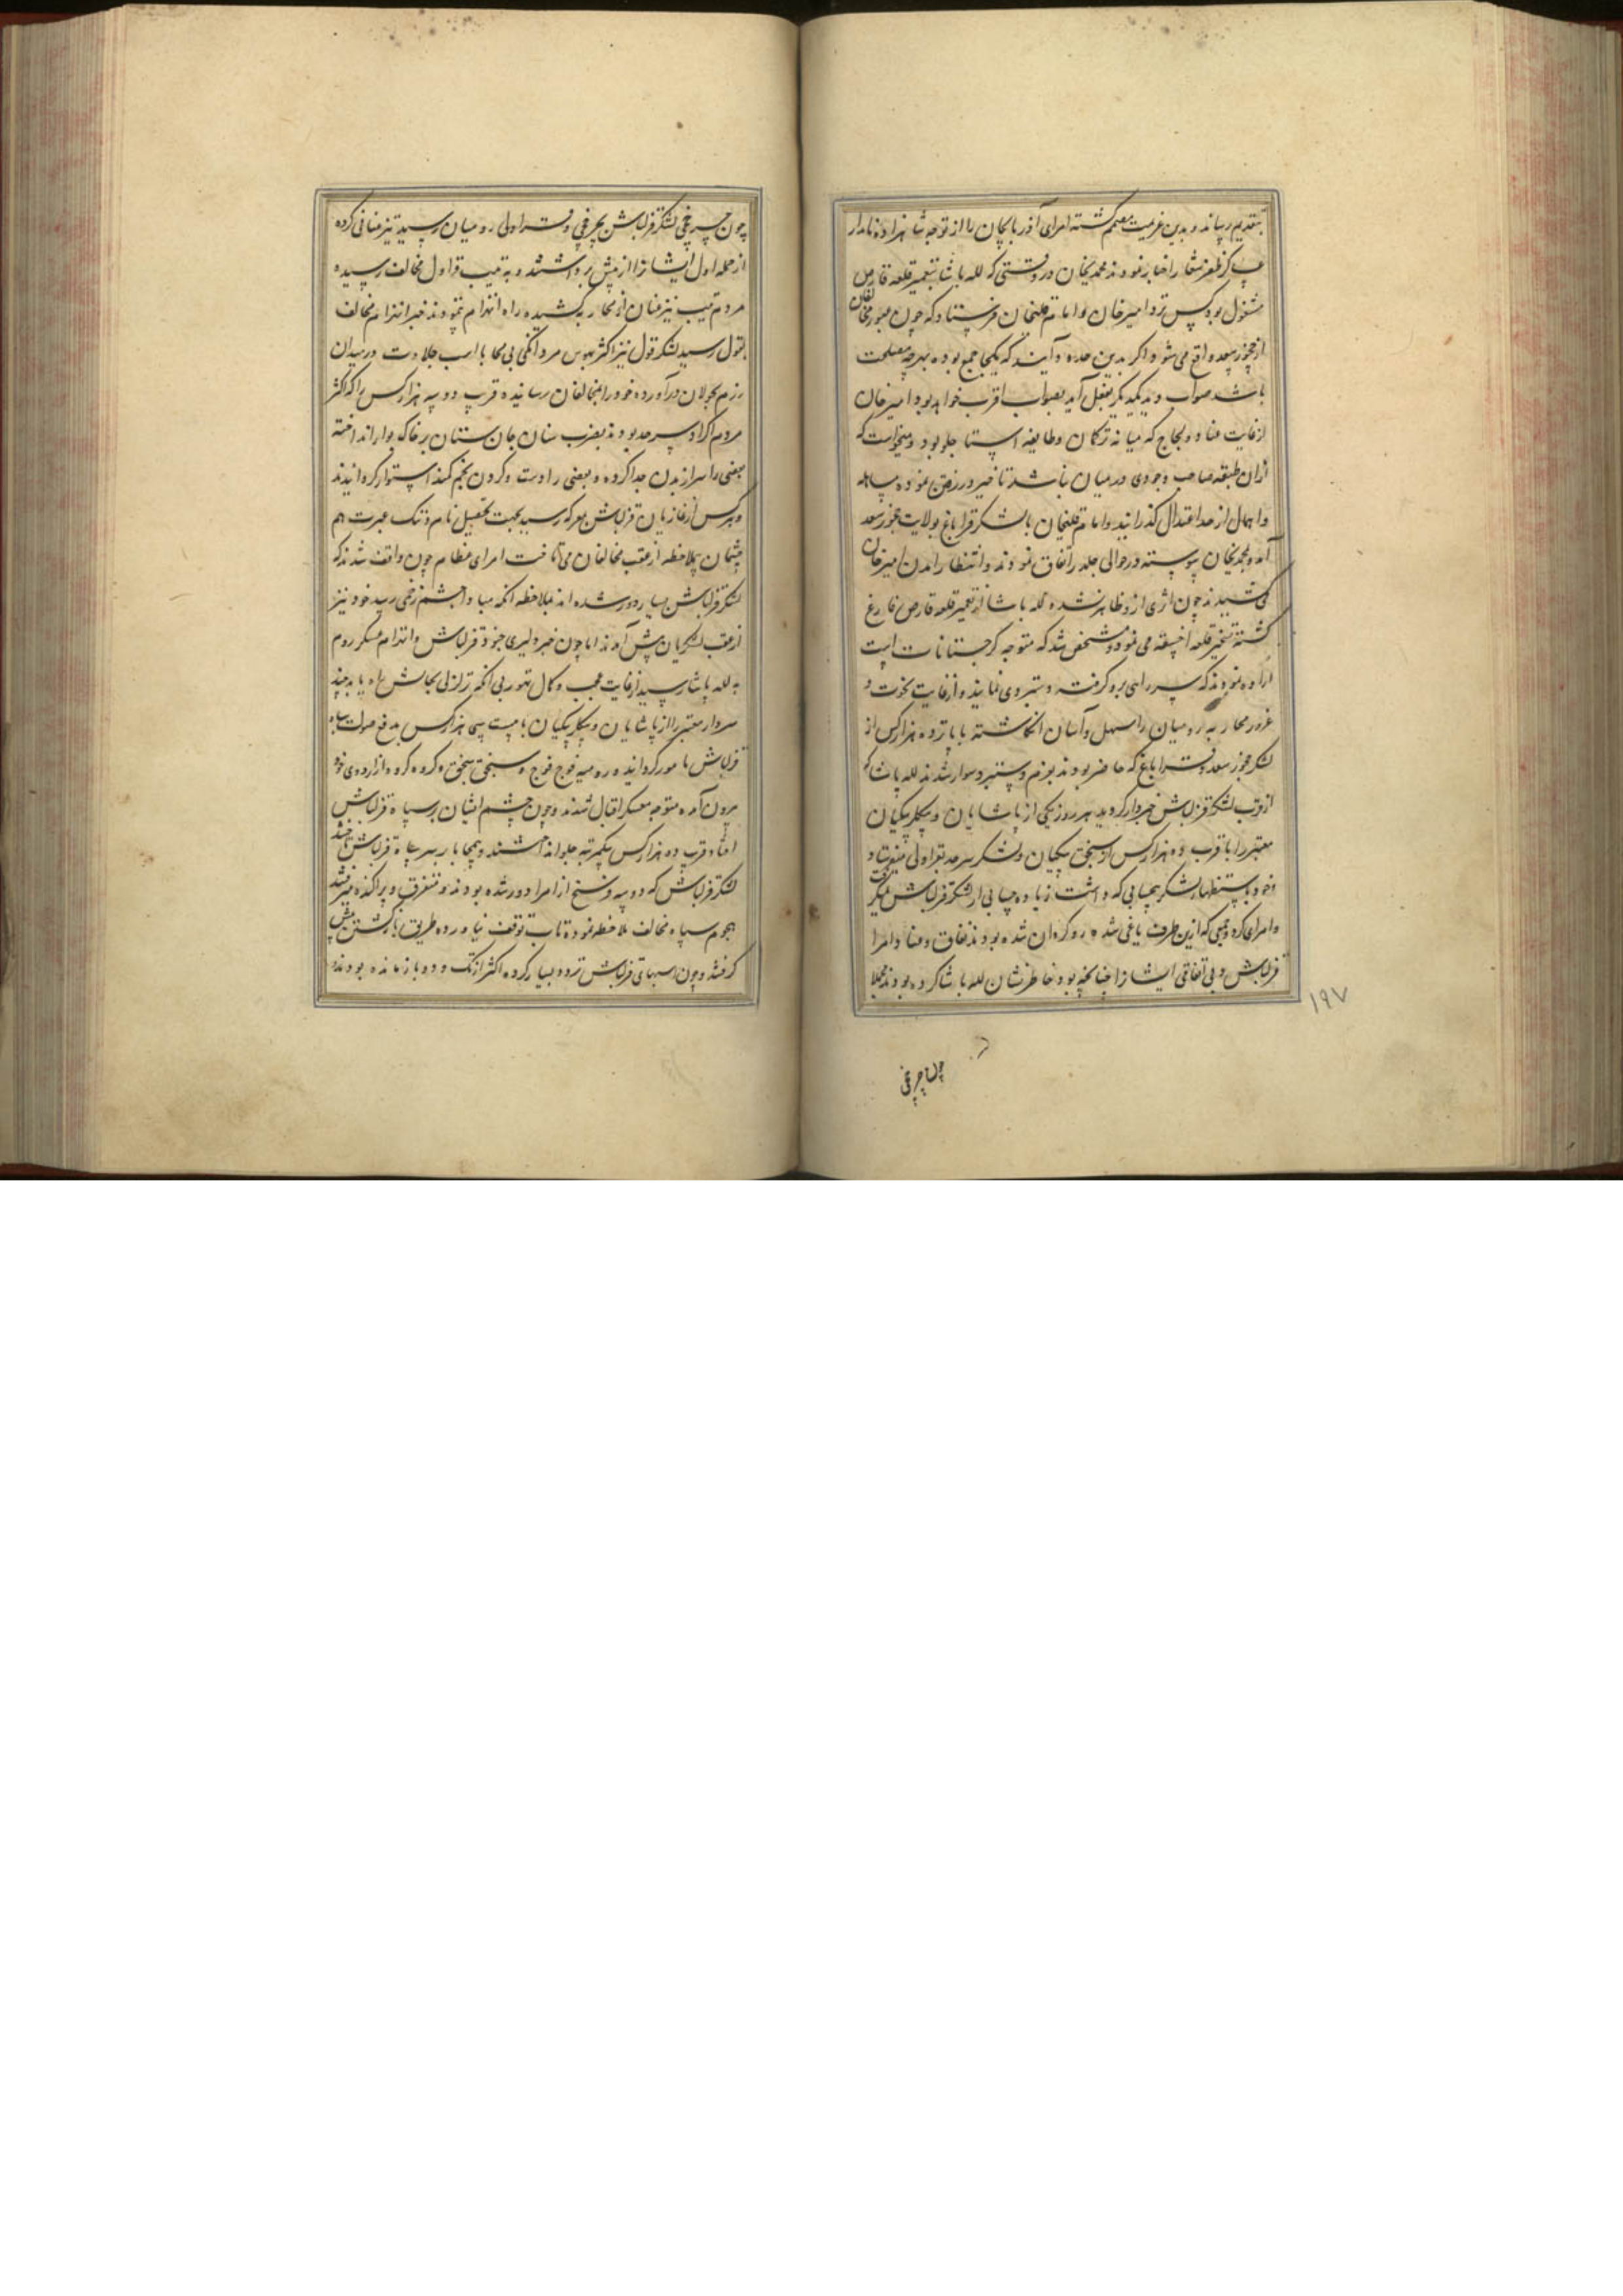 بتقدیم رسانند و بدین عزیمت مصمم کشته امرای آذربایجان را از توجه شاهزاده نامدار
عساکر ظفر شعار اخبار نمودند محمدیخان در وقتی که لله پاشا بتعمیر قلعه قارص
مشغول بود کس نزد امیرخان و امام قلیخان فرستاد که چون عبور مخالفان
از چخور سعد واقع می شود اکر بدین حدود آیند که یکجا جمع بوده بهرچه مصلحت
باشد صواب دید یکدیکر بفعل آید بصواب اقرب خواهد بود امیرخان
از غایت عناد و لجاج که میانه ترکمان و طایفه استاجلو بود و میخواست که
از آن طبقه صاحب وجودی در میان نباشد تاخیر در رفتن نموده تساهل
و اهمال از حد اعتدال کذرانید و امام قلیخان با لشکر قراباغ بولایت چخور سعد
آمد و بمحمدیخان پیوسته در حوالی جلدر اتفاق نمودند و انتظار آمدن امیرخان
می کشیدند چون اثری از و ظاهر نشد و لله پاشا از تعمیر قلعه قارص فارغ
کشته تسخیر قلعه اخسقه می نمود و مشخص شد که متوجه کرجستانات است
اراده نمودند که سر راهی برو کرفته دستبردی نمایند و از غایت نخوت و
غرور محاربه رومیان را سهل و آسان انکاشته با پانزده هزار کس از
لشکر چخور سعد و قراباغ که حاضر بودند بعزم دستبرد سوار شدند لله پاشا که
از قرب لشکر قزلباش خبردار کردید هر روز یکی از پاشایان و بیکلر بیکیان
معتبر را با قرب ده هزار کس از سنجق بیکیان و لشکر سرحد بقراولی میفرستاد
و خود باستظهار لشکر بیحسابی که داشت زیاده حسابی از لشکر قزلباش نمیکرفت
و امرای کرد و جمعی که ازین طرف یاغی شده رو کردان شده بودند نفاق و عناد امرا
قزلباش و بی اتفاقی ایشانرا چنانچه بود خاطر نشان لله پاشا کرده بودند مجملا
۱۹۷
چون چرخی
چون چرخچی لشکر قزلباش بچرخچی و قراولی رومیان رسید تیز عنانی کرده
از حمله اول ایشانرا از پیش برداشتند و به تیب قراول مخالف رسیده
مردم تیب نیز عنان از محاربه کشیده راه انهزام پیمودند خبر انهزام مخالف
بقول رسید لشکر قول نیز اکثر بهوس مردانکی بی محابا اسب جلادت در میدان
رزم بجولان درآورده خود را بمخالفان رسانیده قرب دو سه هزار کس را که اکثر
مردم اکراد سرحد بودند بضرب سنان جان ستان بر خاک بوار انداخته
بعضی را سر از بدن جدا کرده و بعضی را دست و کردن بخم کمند استوار کردانیدند
و هر کس از غازیان قزلباش بمعرکه رسید بجهت تحصیل نام و ننک عبرت هم
چشمان بملاحظه از عقب مخالفان می تاخت امرای عظام چون واقف شدند که
لشکر قزلباش بسیار دور شده اند بملاحظه آنکه مبادا چشم زخمی رسد خود نیز
از عقب لشکریان پیش آمدند اما چون خبر دلیری جنود قزلباش و انهزام عسکر روم
به لله پاشا رسید از غایت عجب و کمال تهور بی آنکه تزلزلی بحالش راه یابد چند
سردار معتبر را از پاشایان و بیکلر بیکیان با بیست سی هزار کس بدفع صولت سپاه
قزلباش مامور کردانید و رومیه فوج فوج و سنجق سنجق و کروه کروه از اردوی خود
بیرون آمده متوجه معسکر اقبال شدند و چون چشم ایشان بر سپاه قزلباش
افتاد قرب ده هزار کس یکمرتبه جلو انداختند و بیمحابا بر سپاه قزلباش
لشکر قزلباش که دو سه فرسخ از امرا دور شده بودند و متفرق و پراکنده میرفتند
هجوم سپاه مخالف ملاحظه نموده تاب توقف نیاورده طریق بازکشتن پیش
کرفتند و چون اسبهای قزلباش تردد بسیار کرده اکثر از تک و دو بازمانده بودند